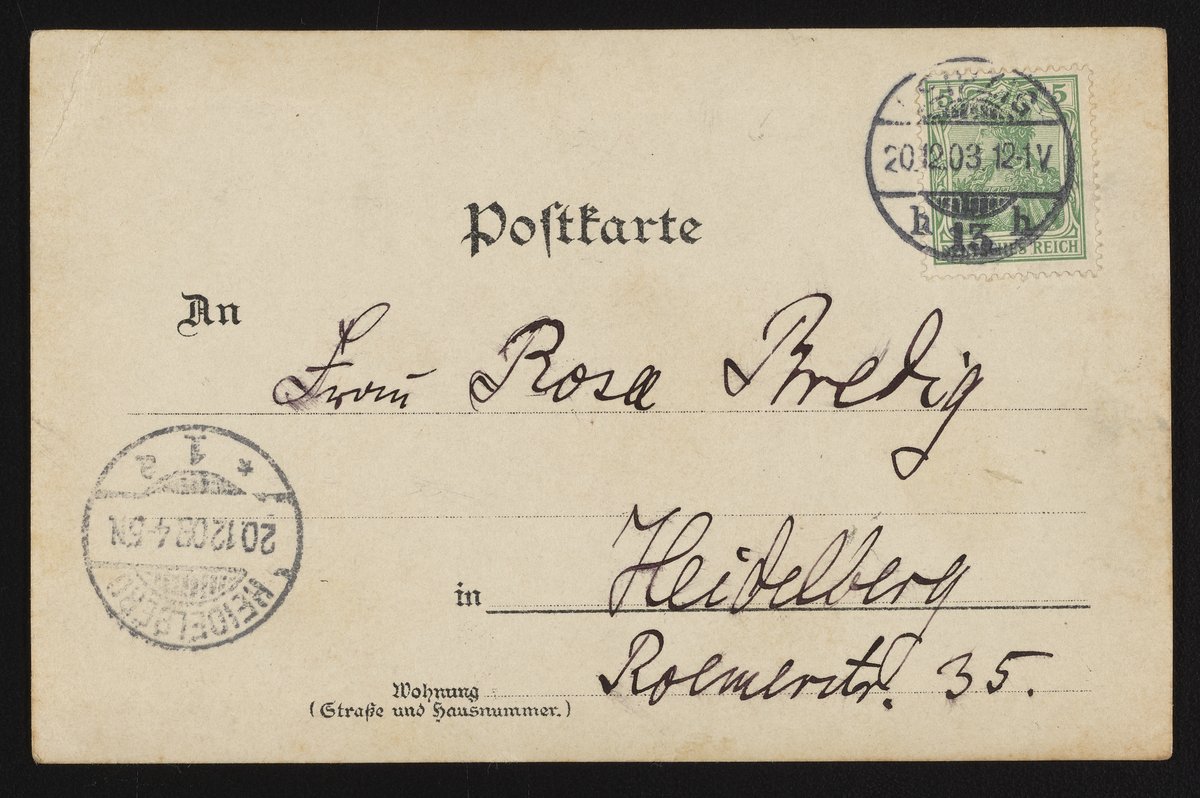 5 5
20.12.03. 12-1 V.
h 13 h
DEUTSCHES REICH
Postkarte
An
Frau Rosa Bredig
* 1 a
20.12.03. 4-5 N.
HEIDELBERG
in Heidelberg
Wohnung
(Straße und Hausnummer.)
Roemerstr. 35.